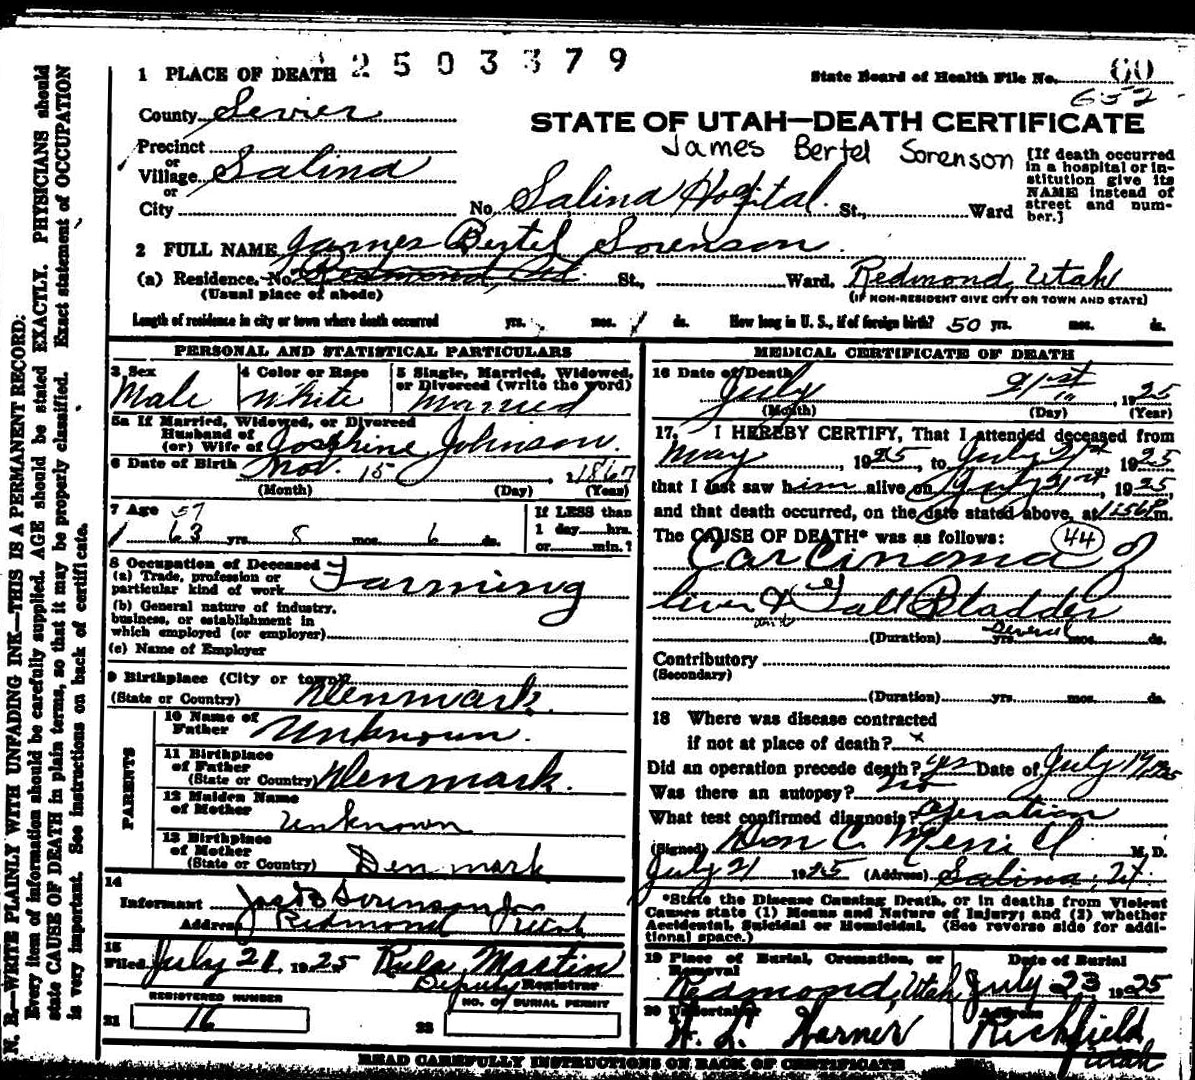 2503379
1 PLACE OF DEATH
State Board of Health File No. 60
652
County Sevier
STATE OF UTAH—DEATH CERTIFICATE
James Bertel Sorenson
Precinct
or
Village Salina
or
City
No. Salina Hospital St., Ward
[If death occurred
in a hospital or in-
stitution give its
NAME instead of
street and num-
ber.]
2 FULL NAME James Bertel Sorenson.
(a) Residence. No. Redmond, St., Ward. Redmond, Utah
(Usual place of abode)
(IF NON-RESIDENT GIVE CITY OR TOWN AND STATE)
Length of residence in city or town where death occurred yrs. mos. ds. How long in U. S., if of foreign birth? 50 yrs. mos. ds.
PERSONAL AND STATISTICAL PARTICULARS
3 Sex
Male
4 Color or Race
White
5 Single, Married, Widowed,
or Divorced (write the word)
Married
5a If Married, Widowed, or Divorced
Husband of
(or) Wife of Josephine Johnson.
6 Date of Birth Nov. 15, 1867
(Month) (Day) (Year)
7 Age 57
63 yrs. 8 mos. 6 ds.
If LESS than
1 day hrs.
or min.?
8 Occupation of Deceased
(a) Trade, profession or
particular kind of work Farming
(b) General nature of industry.
business, or establishment in
which employed (or employer)
(c) Name of Employer
9 Birthplace (City or town)
(State or Country) Denmark.
PARENTS
10 Name of
Father Unknown.
11 Birthplace
of Father
(State or Country) Denmark.
12 Maiden Name
of Mother Unknown
13 Birthplace
of Mother
(State or Country) Denmark
14
Informant Jacob Sorenson
Address Redmond Utah
15
Filed July 21, 1925 Rula Mastin
Deputy Registrar
REGISTERED NUMBER
21 16
NO. OF BURIAL PERMIT
22
MEDICAL CERTIFICATE OF DEATH
16 Date of Death
July 21st, 1925
(Month) (Day) (Year)
17, I HEREBY CERTIFY, That I attended deceased from
May, 1925, to July 21st, 1925
that I last saw him alive on July 21st, 1925,
and that death occurred, on the date stated above, at 1256P m.
The CAUSE OF DEATH* was as follows: 44
Carcinoma of
liver & Gall Bladder
and
(Duration) yrs. Several mos. ds.
Contributory
(Secondary)
(Duration) yrs. mos. ds.
18 Where was disease contracted
if not at place of death? x
Did an operation precede death? yes Date of July 19 1925
Was there an autopsy? No
What test confirmed diagnosis? Operation
(Signed) Don C. Merrill M. D.
July 21 1925 (Address) Salina, Ut.
*State the Disease Causing Death, or in deaths from Violent
Causes state (1) Means and Nature of Injury; and (2) whether
Accidental, Suicidal or Homicidal. (See reverse side for addi-
tional space.)
19 Place of Burial, Cremation, or
Removal
Redmond, Utah
Date of Burial
July 23 1925
20 Undertaker
Address
Richfield
Utah
READ CAREFULLY INSTRUCTIONS ON BACK OF CERTIFICATE
N. B.—WRITE PLAINLY WITH UNFADING INK—THIS IS A PERMANENT RECORD:
Every item of information should be carefully supplied. AGE should be stated EXACTLY. PHYSICIANS should
state CAUSE OF DEATH in plain terms, so that it may be properly classified. Exact statement of OCCUPATION
is very important. See instructions on back of certificate.